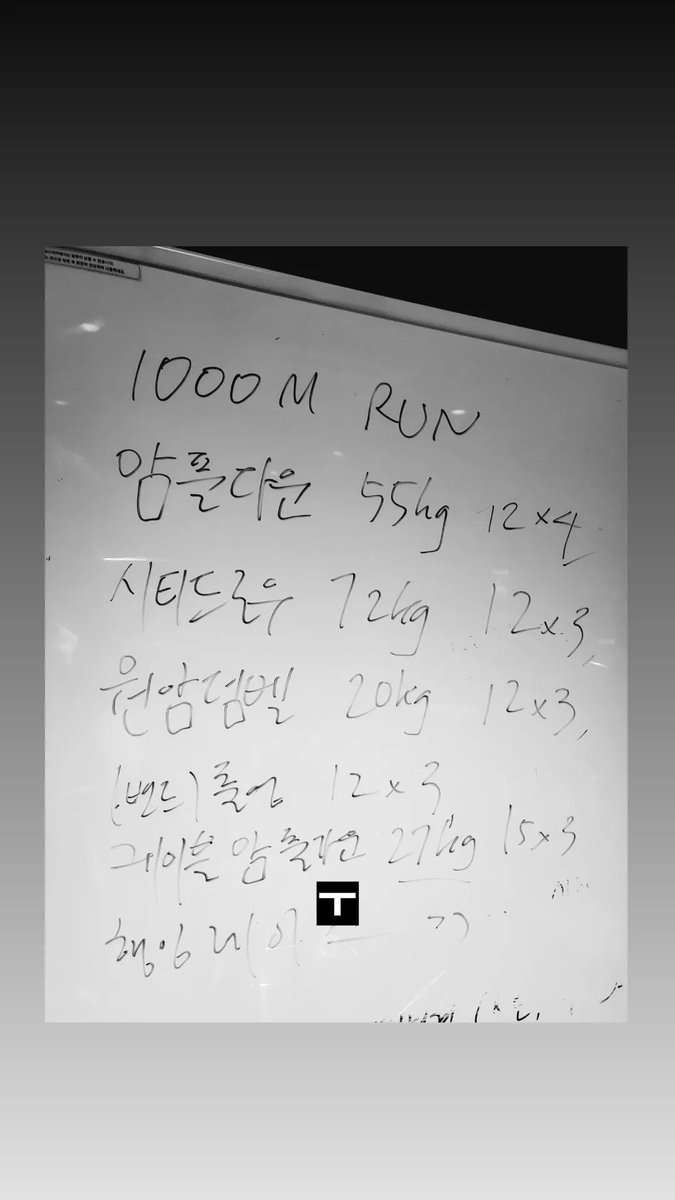 1000M RUN
암풀다운 55kg 12×4
시티드로우 72kg 12×3,
원암덤벨 20kg 12×3,
(밴드)풀업 12×3
케이블 암풀다운 27kg 15×3
행잉레이
T